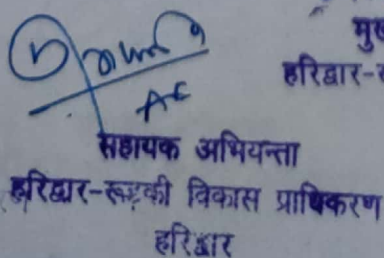 मुख
हरिद्वार-रू
AE
सहायक अभियन्ता
हरिद्वार-रूड़की विकास प्राधिकरण
हरिद्वार